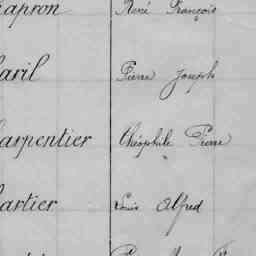 apron René François
aril Pierre Joseph
arpentier Théophile Pierre
artier Louis Alfred